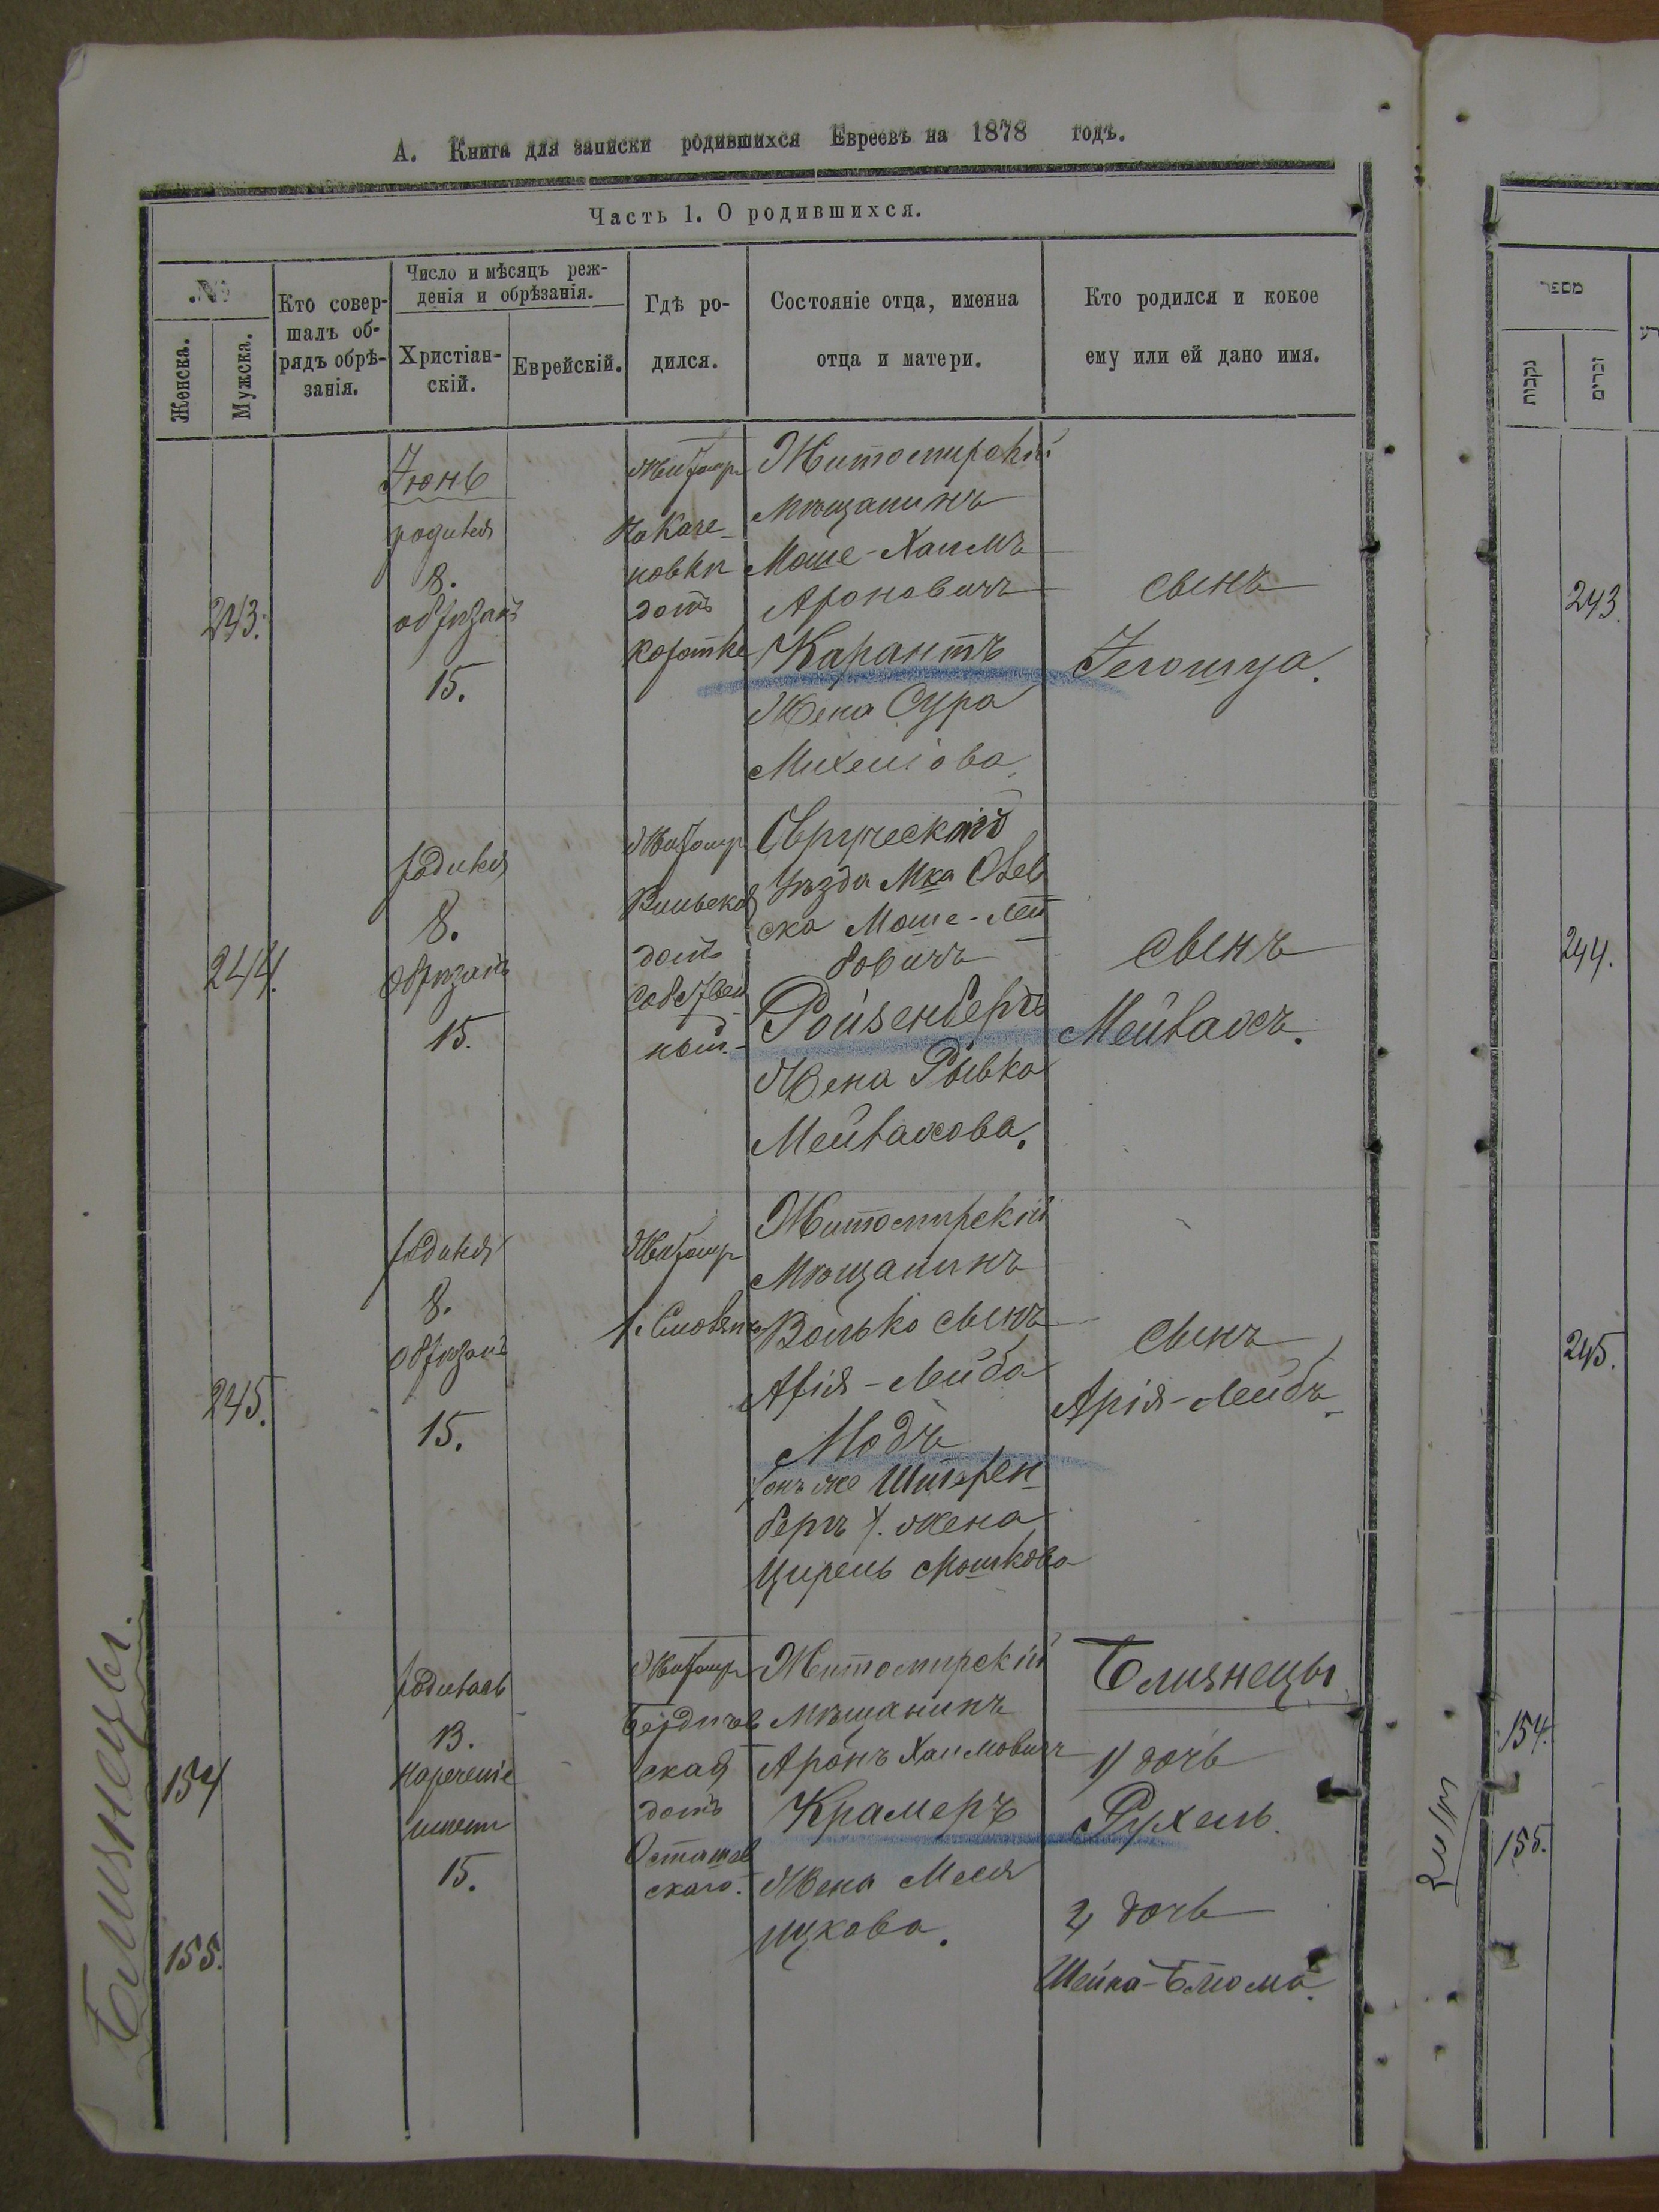 А. Книга для записки родившихся Евреевъ на 1878 годъ.
Часть 1. О родившихся.
№
Женска.
Мужска.
Кто совер-
шалъ об-
рядъ обрѣ-
занія.
Число и мѣсяцъ реж-
денія и обрѣзанія.
Христіан-
скій.
Еврейскій.
Гдѣ ро-
дился.
Состояніе отца, именна
отца и матери.
Кто родился и кокое
ему или ей дано имя.
243.
Іюнь
родился
8.
обрѣзанъ
15.
Житомр
домъ
Житомирскій
мѣщанинъ
Моше-Хаимъ
Ароновичъ
Карантъ
Жена Сура
Михелова
сынъ
Іегошуа.
244.
родился
8.
обрѣзанъ
15.
Житомр
Вильская
домъ
собствен
ный.
Овручскаго
уѣзда Мка Олев
ска Моше-Лей
бовичъ
Ройзенбергъ
Жена Рывка
Мейлахова.
сынъ
Мейлахъ.
245.
родился
8.
обрѣзанъ
15.
Житомр
Житомирскій
мѣщанинъ
Волько сынъ
Арія-Лейба
Модъ
онъ же Штерен
бергъ). жена
Цирель Мошкова
сынъ
Арія-Лейбъ
Близнецы.
154
155.
родилась
13.
нареченіе
имени
15.
Житомр
Бердичев
ская
домъ
Осташев
скаго.
Житомирскій
мѣщанинъ
Аронъ Хаимовичъ
Крамеръ
Жена Меся
Ицкова.
Близнецы
1) дочь
Рухель.
2) дочь
Шейна-Блюма.
מספר
נקבות
זכרים
243.
244.
245.
154.
155.